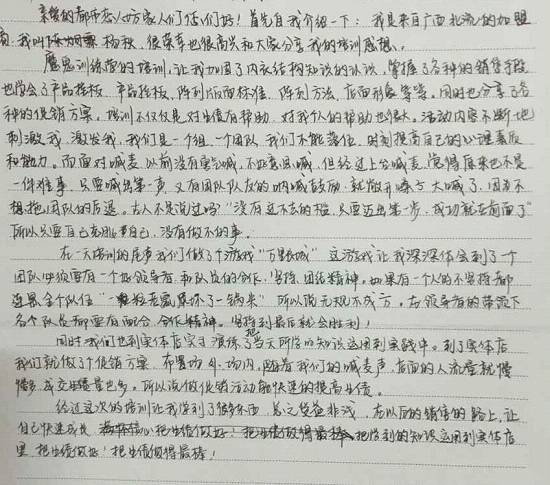 亲爱的都市恋人的家人们你们好！首先自我介绍一下：我是来自广西北流的加盟
商，我叫杨秋，很荣幸也很高兴和大家分享我的培训感想。
魔鬼训练营的培训，让我加固了内衣结构知识的认识，掌握了各种的销售手段
也学会了产品搭板、产品搭板、陈列版面标准、陈列方法、店面形象等等。同时也分享了各
种的促销方案。培训不仅仅是对业绩有帮助，对我个人的帮助也很大。活动内容不断地
刺激我，激发我，我们是一个组，一个团队，我们不能落伍，时刻提高自己的心理素质
和能力。而面对喊麦，以前没有喊，不好意思喊，但经过上台喊麦，觉得原来也不是
一件难事，只要喊出第一声，又有团队队友的呐喊鼓励，就放开嗓子大喊了，因为不
想拖团队的后退。古人不是说过吗？“没有过不去的槛，只要迈出第一步，成功就在前面了”
所以只要自己去挑战自己，没有做不的事。
在一天培训的尾声我们做了个游戏“万里长城”这游戏让我深深体会到了一个
团队必须要有一个好领导者和队员的合作、坚持、团结精神。如果有一个人的不坚持都
连累全个队伍“一粒老鼠屎坏了一锅来”所以说无规不成方。在领导者的带领下
各个队员都要有配合、合作精神。坚持到最后就会胜利！
同时我们也到实体店实习演练了当天所学的知识运用到实践中。到了实体店
我们就做了个促销方案，布置场外、场内，随着我们的喊麦声，店面的人流量就慢
慢多，成交业绩量也多。所以说做促销活动能快速的提高业绩。
经过这次的培训让我学到了很多东西，总之受益非浅，在以后的销售的路上，让
自己快速成长，把学到的知识运用到实体店
里，把业绩做好！把业绩做得最棒！